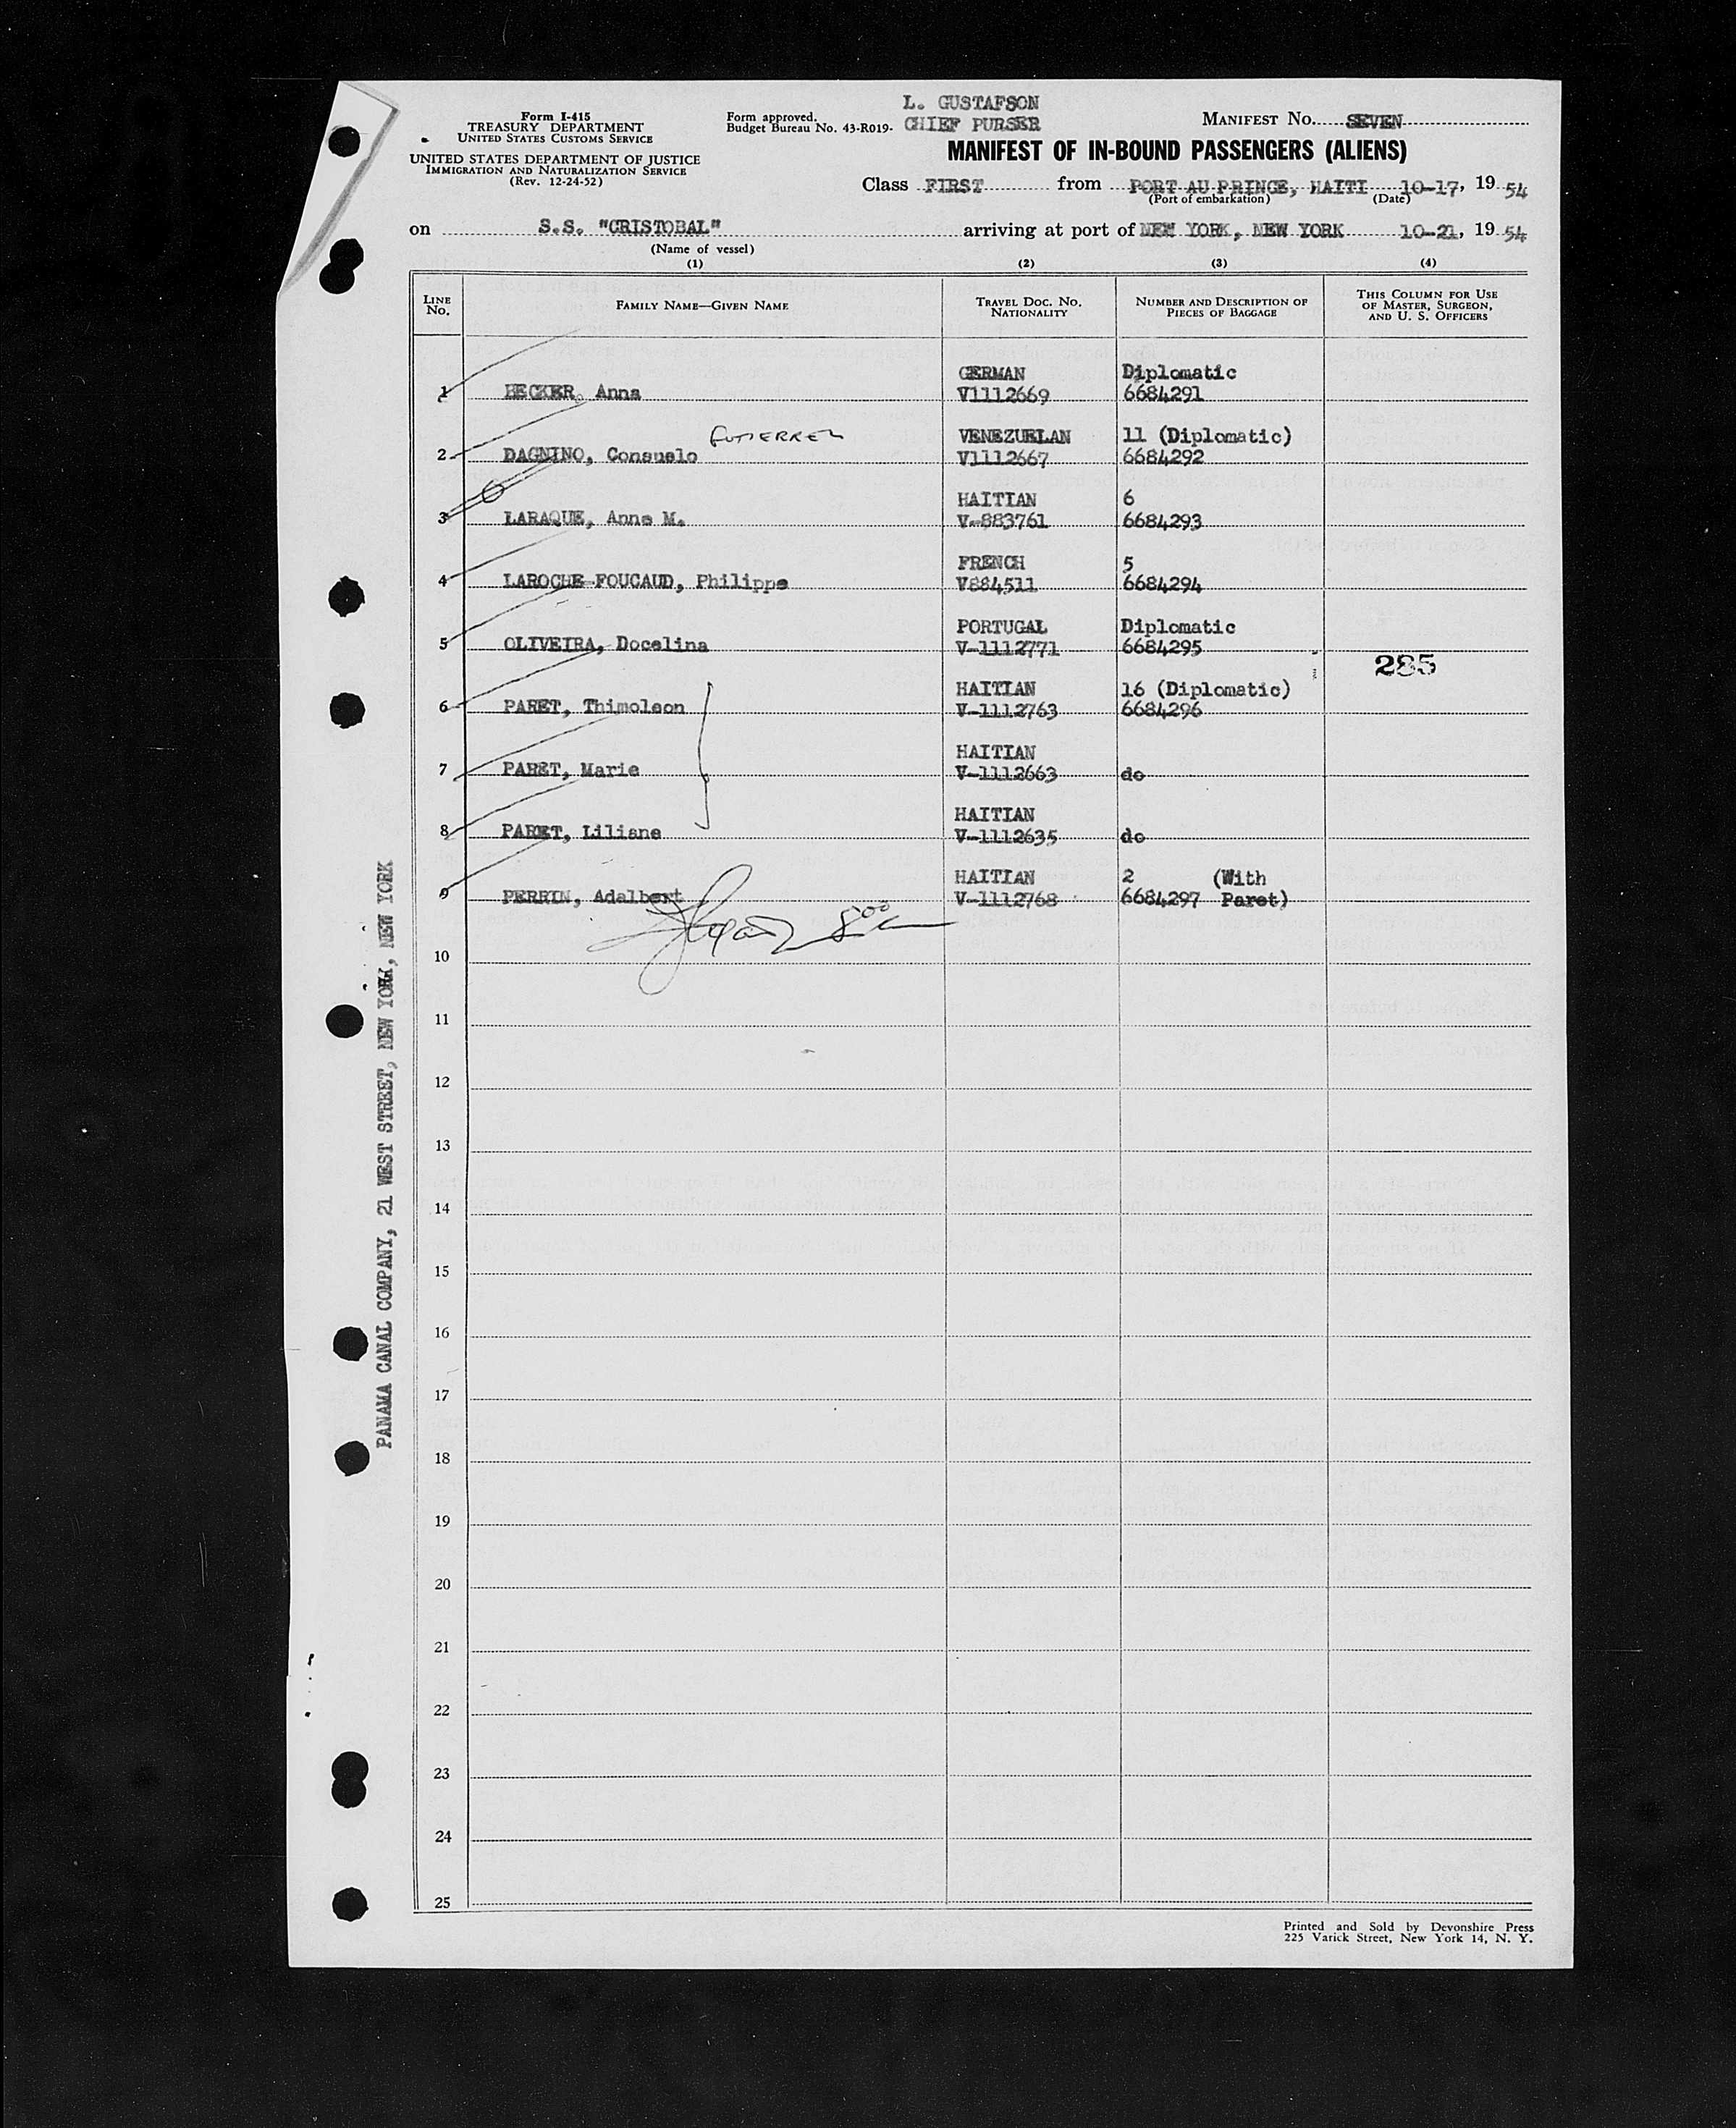 L. GUSTAFSON
Form I-415
TREASURY DEPARTMENT
UNITED STATES CUSTOMS SERVICE
Form approved.
Budget Bureau No. 43-R019-
CHIEF PURSER
MANIFEST No. SEVEN
UNITED STATES DEPARTMENT OF JUSTICE
IMMIGRATION AND NATURALIZATION SERVICE
(Rev. 12-24-52)
MANIFEST OF IN-BOUND PASSENGERS (ALIENS)
Class FIRST from PORT AU PRINCE, HAITI 10-17, 19 54
(Port of embarkation) (Date)
on S.S. "CRISTOBAL" arriving at port of NEW YORK, NEW YORK 10-21, 19 54
(Name of vessel)
(1) (2) (3) (4)
LINE No. FAMILY NAME—GIVEN NAME TRAVEL DOC. No. NATIONALITY NUMBER AND DESCRIPTION OF PIECES OF BAGGAGE THIS COLUMN FOR USE OF MASTER, SURGEON, AND U. S. OFFICERS
GERMAN Diplomatic
1 BECKER, Anna V1112669 6684291
GUTIERREZ VENEZUELAN 11 (Diplomatic)
2 DAGNINO, Consuelo V1112667 6684292
HAITIAN 6
3 LARAQUE, Anne M. V-883761 6684293
FRENCH 5
4 LAROCHE-FOUCAUD, Philippe V884511 6684294
PORTUGAL Diplomatic
5 OLIVEIRA, Docelina V-1112771 6684295
285
HAITIAN 16 (Diplomatic)
6 PARET, Thimoleon V-1112763 6684296
HAITIAN
7 PARET, Marie V-1112663 do
HAITIAN
8 PARET, Liliane V-1112635 do
HAITIAN 2 (With
9 PERRIN, Adalbert V-1112768 6684297 Paret)
10
11
12
13
14
15
16
17
18
19
20
21
22
23
24
25
PANAMA CANAL COMPANY, 21 WEST STREET, NEW YORK, NEW YORK
Printed and Sold by Devonshire Press
225 Varick Street, New York 14, N. Y.